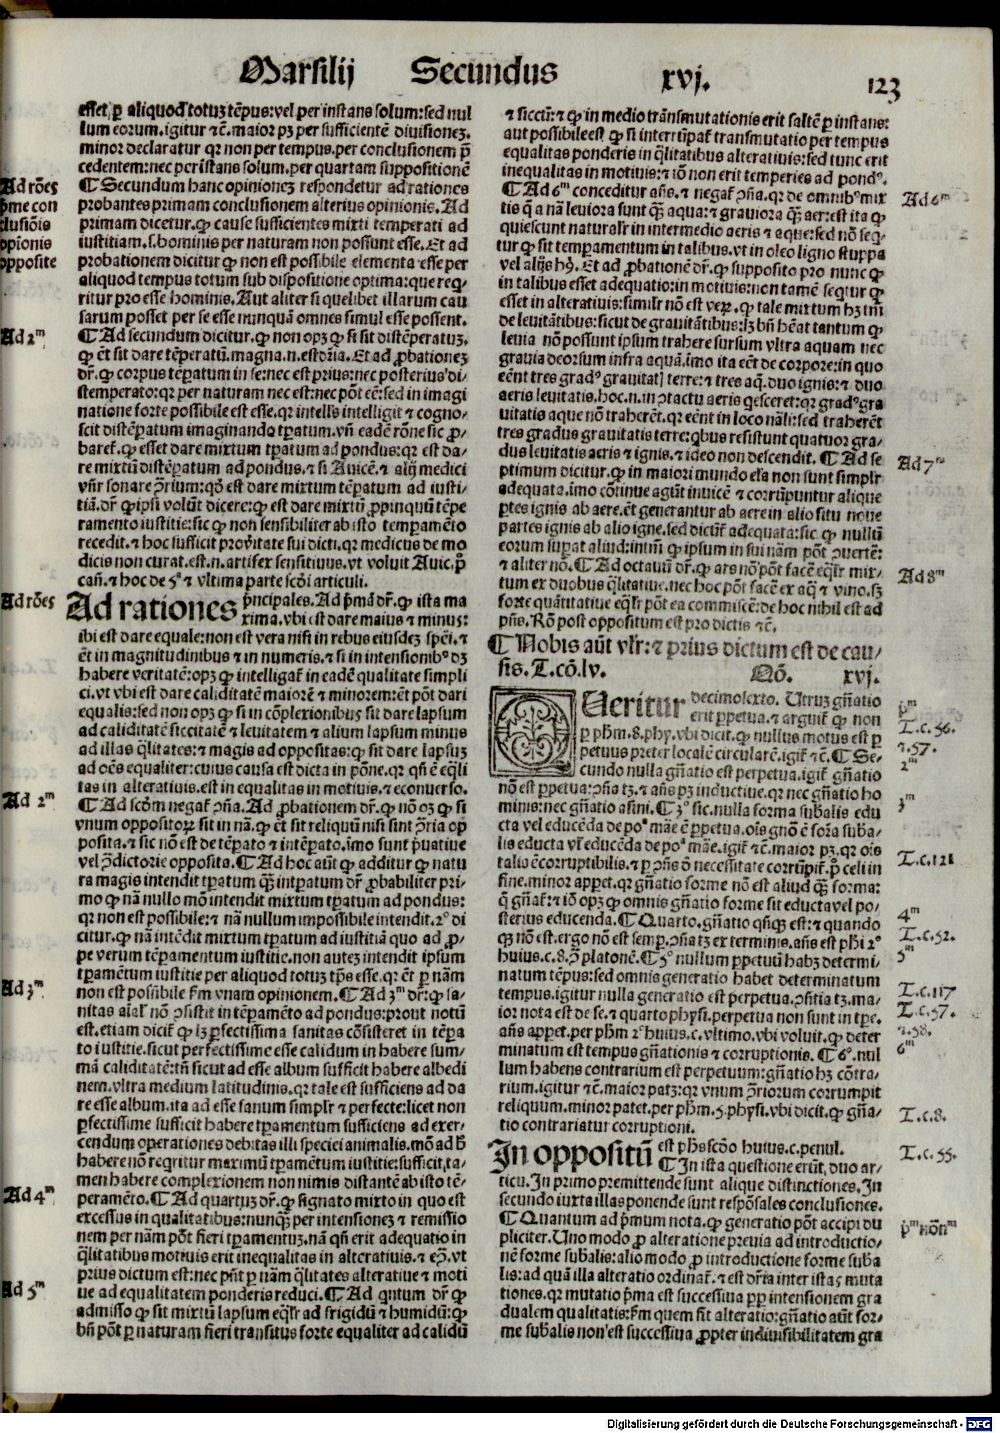 Marsilij Secundus xvj. 123
esset. ꝑ aliquod totuꝫ tẽpus: vel per instans solum: sed nul
lum eorum. igitur ⁊c̃. maior pꝫ per sufficientẽ diuisioneꝫ.
minor declaratur qꝛ non per tempus. per conclusionem p̃
cedentem: nec per instans solum. per quartam suppositionẽ
¶ Secundum hanc opinioneꝫ respondetur ad rationes
probantes primam conclusionem alterius opinionis. Ad
primam dicetur. ꝙ cause sufficientes mixti temperati ad
iustitiam. s. hominis per naturam non possunt esse. Et ad
probationem dicitur ꝙ non est possibile elementa esse per
aliquod tempus totum sub dispositione optima: que req̃
ritur pro esse hominis. Aut aliter si quelibet illarum cau
sarum posset per se esse nunquã omnes simul esse possent.
¶ Ad secundum dicitur. ꝙ non opꝫ ꝙ si sit distẽperatuꝫ.
ꝙ ẽt sit dare tẽperatũ. magna. n. est dr̃ia. Et ad ꝓbationeꝫ
dr̃. ꝙ corpus tẽperatum in se: nec est prius: nec posterius di⸗
stemperato: qꝛ per naturam nec est: nec põt eẽ: sed in imagi
natione forte possibile est esse. qꝛ intells intelligit ⁊ cogno⸗
scit distẽꝑatum imaginando tꝑatum. vñ eadẽ rõne sic ꝓ⸗
baret̃. ꝙ esset dare mixtum tꝑatum ad pondus: qꝛ est da⸗
re mixtũ distẽꝑatum ad pondus. ⁊ si Auicẽ. ⁊ alij medici
vñr sonare ɔ̃rium: qð est dare mixtum tẽperatum ad iusti⸗
tiã. dr̃ ꝙ ipsi volũt dicere: ꝙ est dare mixtũ ꝓpinquũ tẽpe
ramento iustitie: sic ꝙ non sensibiliter ab isto temperamẽto
recedit. ⁊ hoc sufficit pro veritate sui dicti. qꝛ medicus de mo
dicis non curat. est. n. artifex sensitiuus. vt voluit Auic. p̃
cañ. ⁊ hoc de 5ª ⁊ vltima parte scð̃i articuli.
Ad rationes pñcipales. Ad pᵐã dr̃. ꝙ ista ma
xima. vbi est dare maius ⁊ minus:
ibi est dare equale: non est vera nisi in rebus eiusdeꝫ spẽi. ⁊
ẽt in magnitudinibus ⁊ in numeris. ⁊ si in intensionibꝰ dꝫ
habere veritatẽ: opꝫ ꝙ intelligat̃ in eadẽ qualitate simpli
ci. vt vbi est dare caliditatẽ maiorẽ ⁊ minorem: ẽt põt dari
equalis: sed non opꝫ ꝙ si in cõplexionibus sit dare lapsum
ad caliditatẽ siccitatẽ ⁊ leuitatem ⁊ alium lapsum minus
ad illas q̃litates: ⁊ magis ad oppositas: ꝙ sit dare lapsuꝫ
ad oẽs equaliter: cuius causa est dicta in põne. qꝛ qñ ẽ eq̃li
tas in alteratiuis. est in equalitas in motiuis. ⁊ econuerso.
¶ Ad scðm negat̃ ɔña. Ad ꝓbationem dr̃. ꝙ nõ oꝫ ꝙ si
vnum oppositoꝝ sit in nã. ꝙ ẽt sit reliquũ nisi sint ɔ̃ria op
posita. ⁊ sic nõ est de tẽpato ⁊ intẽpato. imo sunt p̃uatiue
vel ɔ̃dictorie opposita. ¶ Ad hoc aũt ꝙ additur ꝙ natu
ra magis intendit tꝑatum qꝫ intꝑatum dr̃ ꝓbabiliter pri⸗
mo ꝙ nã nullo mõ intendit mixtum tꝑatum ad pondus:
qꝛ non est possibile: ⁊ nã nullum impossibile intendit. 2º di
citur. ꝙ nã intẽdit mixtum tꝑatum ad iustitiã quo ad ꝓ⸗
pe verum tẽꝑamentum iustitie. non auteꝫ intendit ipsum
tꝑamẽtum iustitie per aliquod totuꝫ tp̃s esse. qꝛ ẽt ꝑ nãm
non est possibile s̃m vnam opinionem. ¶ Ad 3ᵐ dr̃: ꝙ sa⸗
nitas aĩal̃ nõ ɔsistit in tẽpamẽto ad pondus: prout notũ
est. etiam dicit̃ ꝙ lꝫ ꝑfectissima sanitas cõsisteret in tẽpa
to iustitie. sicut perfectissime esse calidum in habere sum⸗
mã caliditatẽ: tñ sicut ad esse album sufficit habere albedi
nem. vltra medium latitudinis. qꝛ tale est sufficiens ad da
re esse album. ita ad esse sanum simplr̃ ⁊ perfecte: licet non
ꝑfectissime sufficit habere tꝑamentum sufficiens ad exer⸗
cendum operationes debitas illi speciei animalis. mõ ad ħ
habere nõ reqritur maximũ tꝑamẽtum iustitie: sufficit. ta⸗
men habere complexionem non nimis distantẽ ab isto tẽ⸗
peramẽto. ¶ Ad quartuꝫ dr̃. ꝙ signato mixto in quo est
excessus in qualitatibus: nunqꝫ per intensioneꝫ ⁊ remissio
nem per nãm põt fieri tꝑamentuꝫ. nã qñ erit adequatio in
q̃litatibus motiuis erit inequalitas in alteratiuis. ⁊ eɔ̃. vt
prius dictum est: nec pñt ꝑ nãm q̃litates alteratiue ⁊ moti
ue ad equalitatem ponderis reduci. ¶ Ad qntum dr̃ ꝙ
admisso ꝙ sit mixtũ lapsum eq̃lr̃ ad frigidũ ⁊ humidũ: ꝙ
bñ põt ꝑ naturam fieri transitus forte equaliter ad calidũ
Ad rões
pme con
clusiõis
opiõnis
opposite
Ad 2ᵐ
Ad rões
Ad 2ᵐ
Ad 3ᵐ
Ad 4ᵐ
Ad 5ᵐ
⁊ siccũ: ⁊ ꝙ in medio trãnsmutationis erit saltẽ ꝑ instans:
aut possibile est ꝙ si interrũpat̃ transmutatio per tempus
equalitas ponderis in q̃litatibus alteratiuis: sed tunc erit
inequalitas in motiuis: ⁊ iõ non erit temperies ad pondꝰ.
¶ Ad 6ᵐ conceditur añs. ⁊ negat̃ ɔña. qꝛ de omnibꝰ mix
tis q̃ a nã leuiora sunt qꝫ aqua: ⁊ grauiora qꝫ aer: est ita ꝙ
quiescunt naturalr̃ in intermedio aeris ⁊ aque: sed nõ seq̃⸗
tur ꝙ sit tempamentum in talibus. vt in oleo ligno stuppa
vel alijs hꝰ. Et ad ꝓbationẽ dr̃. ꝙ supposito pro nunc ꝙ
in talibus esset adequatio: in motiuis: non tamẽ seqtur ꝙ
esset in alteratiuis: similr̃ nõ est veꝝ. ꝙ tale mixtum hꝫ tm̃
de leuitatibus: sicut de grauitatibus: lꝫ bñ hẽat tantum ꝙ
leuia nõ possunt ipsum trahere sursum vltra aquam nec
grauia deorsum infra aquã. imo ita eẽt de corpore: in quo
eẽnt tres gradꝰ grauitat̃ terre: ⁊ tres aq̃. duo ignis: ⁊ duo
aeris leuitatis. hoc. n. in ɔtactu aeris q̃esceret: qꝛ gradꝰ gra
uitatis aque nõ traherẽt. qꝛ eẽnt in loco nãli: sed traherẽt
tres gradus grauitatis terre: qbus resistunt quatuor gra⸗
dus leuitatis aeris ⁊ ignis. ⁊ ideo non descendit. ¶ Ad se
ptimum dicitur. ꝙ in maiori mundo ela non sunt simplr̃
adequata. imo cõtinue agũt inuicẽ ⁊ corrũpuntur alique
ꝑtes ignis ab aere. ẽt generantur ab aere in alio situ noue
partes ignis ab alio igne. sed dicũt̃ adequata: sic ꝙ nullũ
eorum suꝑat aliud: intm̃ ꝙ ipsum in sui nãm põt ɔuertẽ:
⁊ aliter nõ. ¶ Ad octauũ dr̃. ꝙ ars nõ põt facẽ eq̃lr̃ mix⸗
tum ex duobus q̃litatiue. nec hoc põt facẽ ex aq̃ ⁊ vino. sꝫ
forte quãtitatiue eq̃lr̃ põt ea commiscẽ: de hoc nihil est ad
pñs. Rõ post oppositum est pro dictis ⁊c̃.
¶ Nobis aũt vlr̃: ⁊ prius dictum est de cau⸗
sis. T. cõ. lv. Qõ. xvj.
Queritur decimosexto. Utruꝫ gñatio
erit ꝑpetua. ⁊ arguit̃ ꝙ non
ꝑ ph̃m. 8. phy. vbi dicit. ꝙ nullus motus est ꝑ
petuus preter localẽ circularẽ. igit̃ ⁊c̃. ¶ Se⸗
cundo nulla gñatio est perpetua. igit̃ gñatio
nõ est ꝑpetua: ɔña tꝫ. ⁊ añs pꝫ inductiue. qꝛ nec gñatio ho
minis: nec gñatio asini. ¶ 3º sic. nulla forma subalis edu
cta vel educẽda de poª mãe ẽ ꝑpetua. oĩs gnõ ẽ forã suba⸗
lis educta vel̃ educẽda de poª mãe. igit̃ ⁊c̃. maior pꝫ. qꝛ oĩs
talis ẽ corruptibilis. ⁊ ꝑ ɔñs ð necessitate corrũpit̃. p̃ celi in
fine. minor appet. qꝛ gñatio forme nõ est aliud qꝫ forma:
q̃ gñat̃: ⁊ iõ opꝫ ꝙ omnis gñatio forme sit educta vel po⸗
sterius educenda. ¶ Quarto. gñatio qñqꝫ est: ⁊ quando
qꝫ nõ est. ergo nõ est semꝑ. ɔña tꝫ ex terminis. añs est phi 2º
huius. c. 8. ɔ̃ platonẽ. ¶ 5º nullum ꝑpetuũ habꝫ determi⸗
natum tẽpus: sed omnis generatio habet determinatum
tempus. igitur nulla generatio est perpetua. ɔñtia tꝫ. ma⸗
ior nota est de se. ⁊ quarto physi. perpetua non sunt in tp̃e.
añs appet. per phm 2º huius. c. vltimo. vbi voluit. ꝙ deter
minatum est tempus gñationis ⁊ corruptionis. ¶ 6º. nul
lum habens contrarium est perpetuum: gñatio hꝫ cõtra⸗
rium. igitur ⁊c̃. maior patꝫ: qꝛ vnum ɔ̃riorum corrumpit
reliquum. minor patet. per ph̃m. 5. physi. vbi dicit. ꝙ gña⸗
tio contrariatur corruptioni.
In oppositũ est ph̃s scðo huius. c. penul.
¶ In ista questione erũt. duo ar⸗
ticu. In primo premittende sunt alique distinctiones. In
secundo iuxta illas ponende sunt respõsales conclusiones.
¶ Quantum ad pᵐum nota. ꝙ generatio põt accipi du
pliciter. Uno modo ꝓ alteratione preuia ad introductio⸗
nẽ forme subalis: alio modo ꝓ introductione forme suba
lis: ad quã illa alteratio ordinat̃. ⁊ est dr̃ia inter istas muta
tiones. qꝛ mutatio pᵐa est successiua ꝑꝑ intensionem gra
dualem qualitatis: s̃m quem sit alteratio: gñatio aũt for⸗
me subalis non est successiua ꝓpter indiuisibilitatem gra
Ad 6ᵐ
Ad 7ᵐ
Ad 8ᵐ
pᵐ
T. c. 56.
⁊. 57.
2ᵐ
3ᵐ
T. c. 121
4ᵐ
T. c. 52.
5ᵐ
T. c. 117
T. c. 57.
⁊. 58.
6ᵐ
T. c. 8.
T. c. 55.
pᵐ nõnᵐ
Digitalisierung gefördert durch die Deutsche Forschungsgemeinschaft - DFG